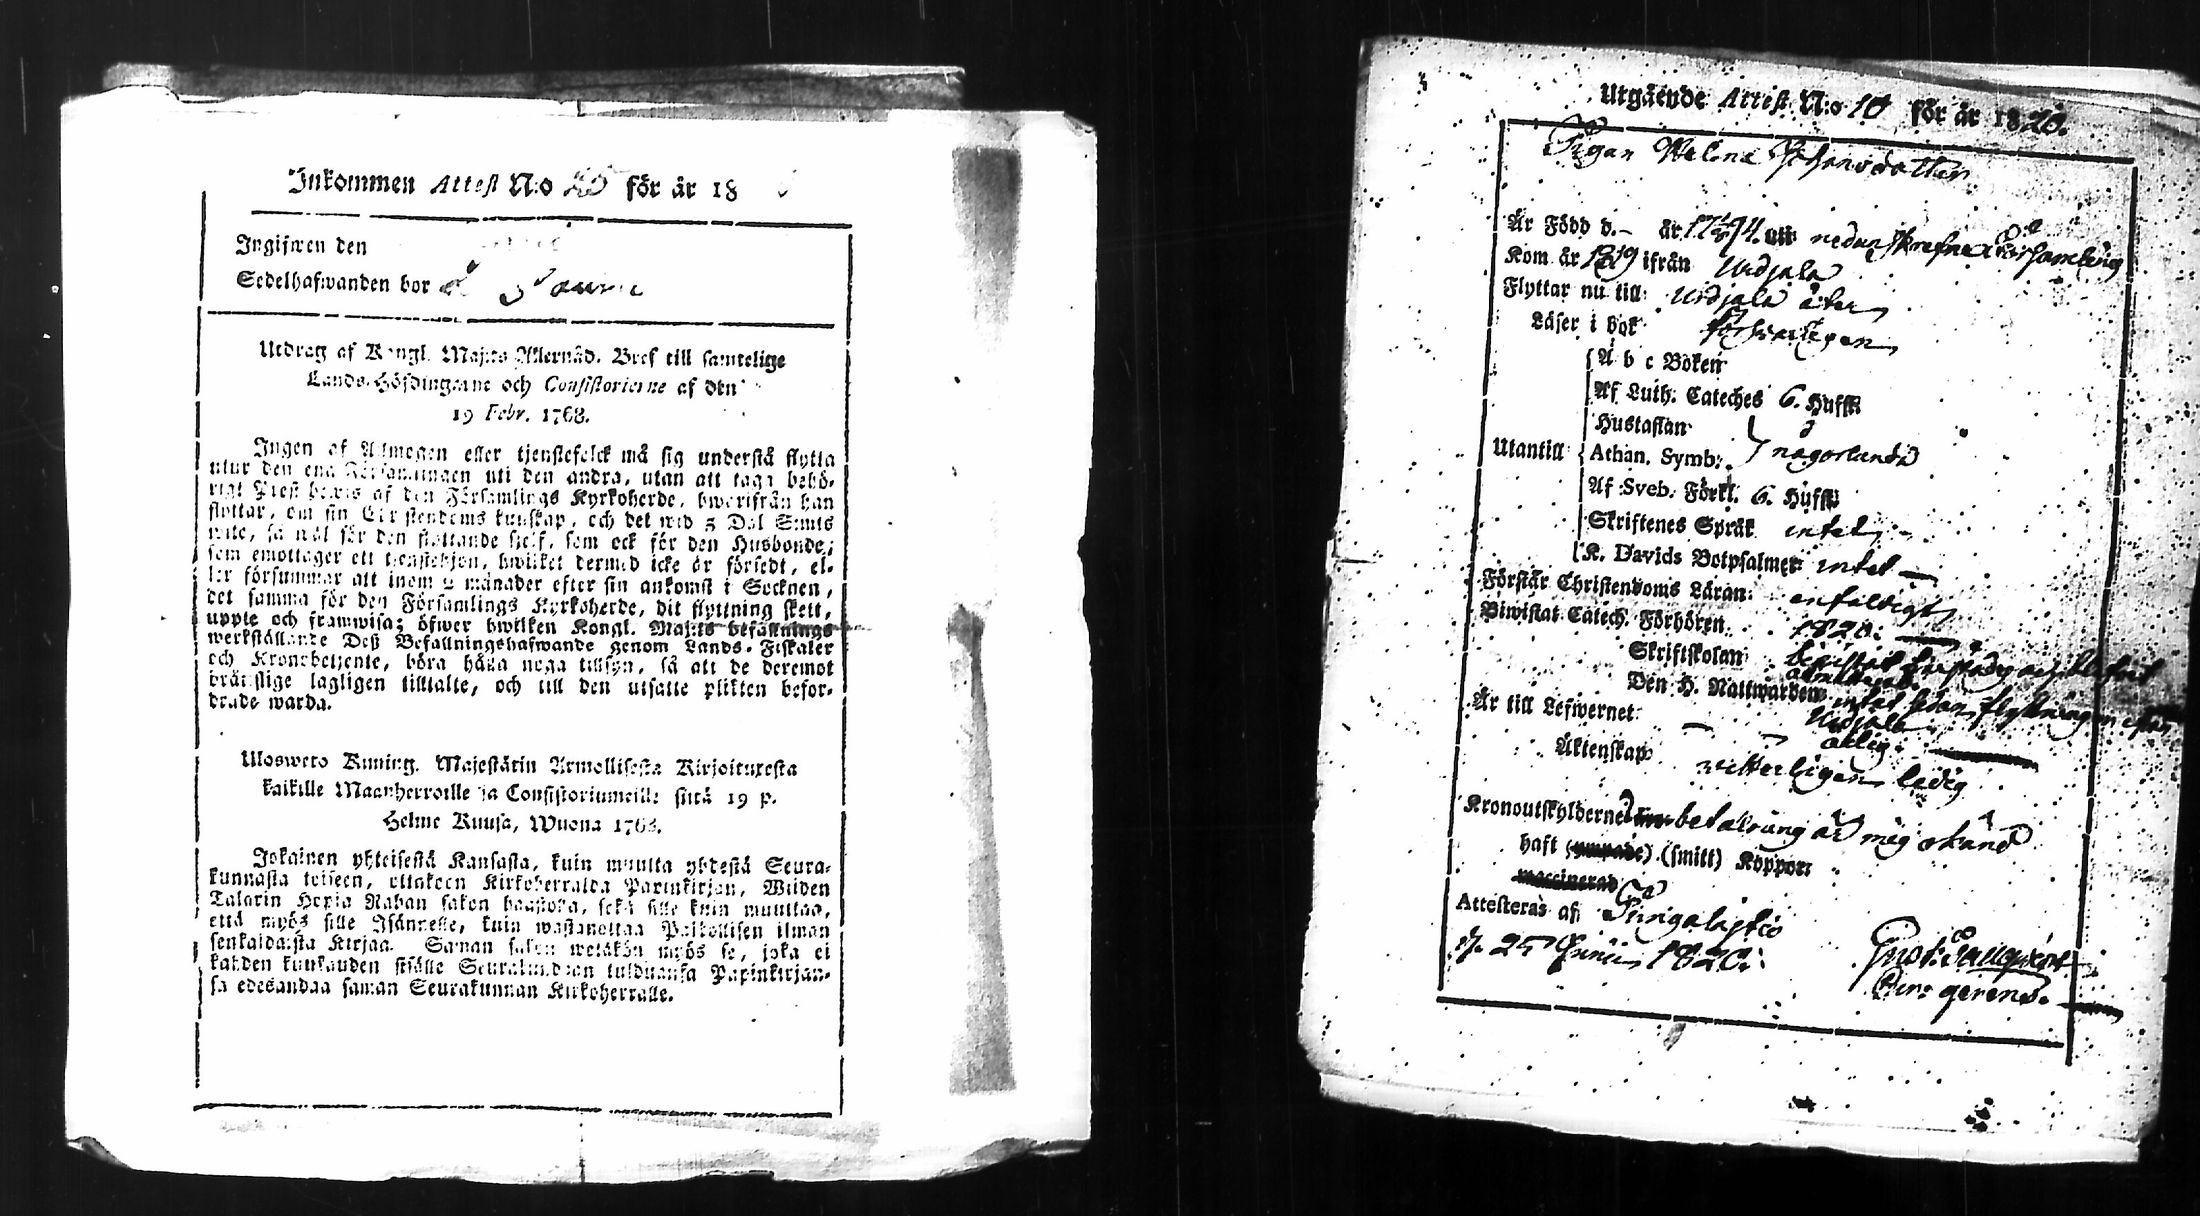 Inkommen Attest N:o 25 för år 18
Ingifwen den
Sedelhafwanden bor
Utdrag af Kongl. Maj:ts Allernåd. Bref till samtelige
Lands-Höfdingarne och Consistorierne af den
19 Febr. 1768.
Ingen af Allmogen eller tjenstefolck må sig understå flytta
utur den ena Församlingen uti den andra, utan att taga behö-
rigt Prest bewis af den Församlings Kyrkoherde, hwarifrån han
flyttar, om sin Christendoms kunskap, och det wid 5 Dal. S:mts
wite, så wäl för den flyttande sjelf, som ock för den Husbonde;
som emottager ett tjenstehjon, hwilket dermed icke är försedt, el-
ler försummar att inom 2 månader efter sin ankomst i Socknen,
det samma för den Församlings Kyrkoherde, dit flyttning skett,
uppte och framwisa; öfwer hwilken Kongl. Maj:ts befallnings
werkställande Deß Befallningshafwande genom Lands-Fiskaler
och Kronobetjente, böra hålla noga tillsyn, så att de deremot
brättslige lagligen tilltalte, och till den utsatte plikten befor-
drade warda.
Ulosweto Kuning. Majestätin Armollisesta Kirjoituxesta
kaikille Maanherroille ja Consistoriumeille siitä 19 p.
Helme Kuusa, Wuona 1768.
Jokainen yhteisestä Kansasta, kuin muutta yhdestä Seura-
kunnasta toiseen, ottakoon Kirkoherralda Papinkirjan, Wiiden
Talarin Hopia Rahan sakon haastolla, sekä sille kuin muuttaa,
että myös sille Isännelle, kuin wastanottaa Palkollisen ilman
senkaldaista Kirjaa. Saman sakon wetäkön myös se, joka ei
kahden kuukauden sisälle Seurakundaan tulduansa Papinkirjan-
sa edesandaa saman Seurakunnan Kirkoherralle.
Utgående Attest N:o 10 för år 1820.
Pigan Helena Johansdotter
Är Född d. – år 17 94. uti nedanskrefne Församling
Kom år 1819 ifrån Urdjala
Flyttar nu till Urdjala åter
Läser i bok försvarligen
A b c Boken
Af Luth. Cateches 6. Hufst.
Hustaflan
Utantill Athan. Symb. någorlunda
Af Sveb. Förkl. 6. Hufst.
Skriftenes Språk intet
K. Davids Botpsalmer intet
Förstår Christendoms Läran enfaldigt
Biwistat Catech. Förhören 1820.
Skriftskolan
Den H. Nattwarden intet sedan flyttningen ifrån
Urdjala
Är till Lefwernet
Äktenskap witterligen ledig
Kronoutskylderne betalning är mig okänd
haft (ympade) (smitt) Koppor
vaccinerad
Attesteras af
d. 25 Junii 1820.